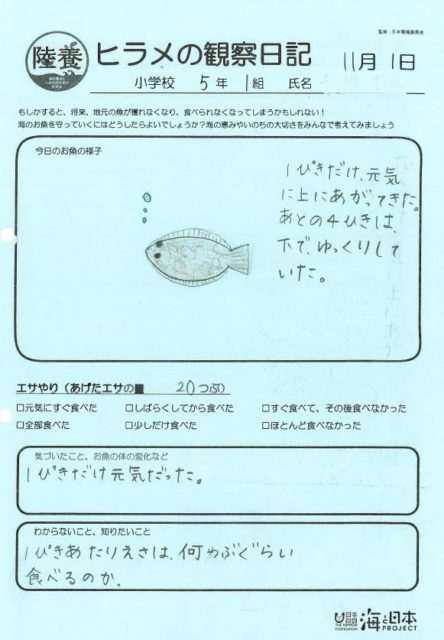 監修：日本養殖振興会
陸養
ヒラメの観察日記
11月 1日
小学校 5年 1組 氏名
もしかすると、将来、地元の魚が獲れなくなり、食べられなくなってしまうかもしれない！
海のお魚を守っていくにはどうしたらよいでしょうか？海の恵みやいのちの大切さをみんなで考えてみましょう
今日のお魚の様子
1ぴきだけ、元気
に上にあがってきた。
あとの4ひきは、
下で、ゆっくりして
いた。
エサやり（あげたエサの量 20つぶ）
□元気にすぐ食べた □しばらくしてから食べた □すぐ食べて、その後食べなかった
□全部食べた □少しだけ食べた □ほとんど食べなかった
気づいたこと、お魚の体の変化など
1ぴきだけ元気だった。
わからないこと、知りたいこと
1ぴきあたりえさは、何つぶぐらい
食べるのか、
日本財団
THE NIPPON FOUNDATION
海と日本
PROJECT